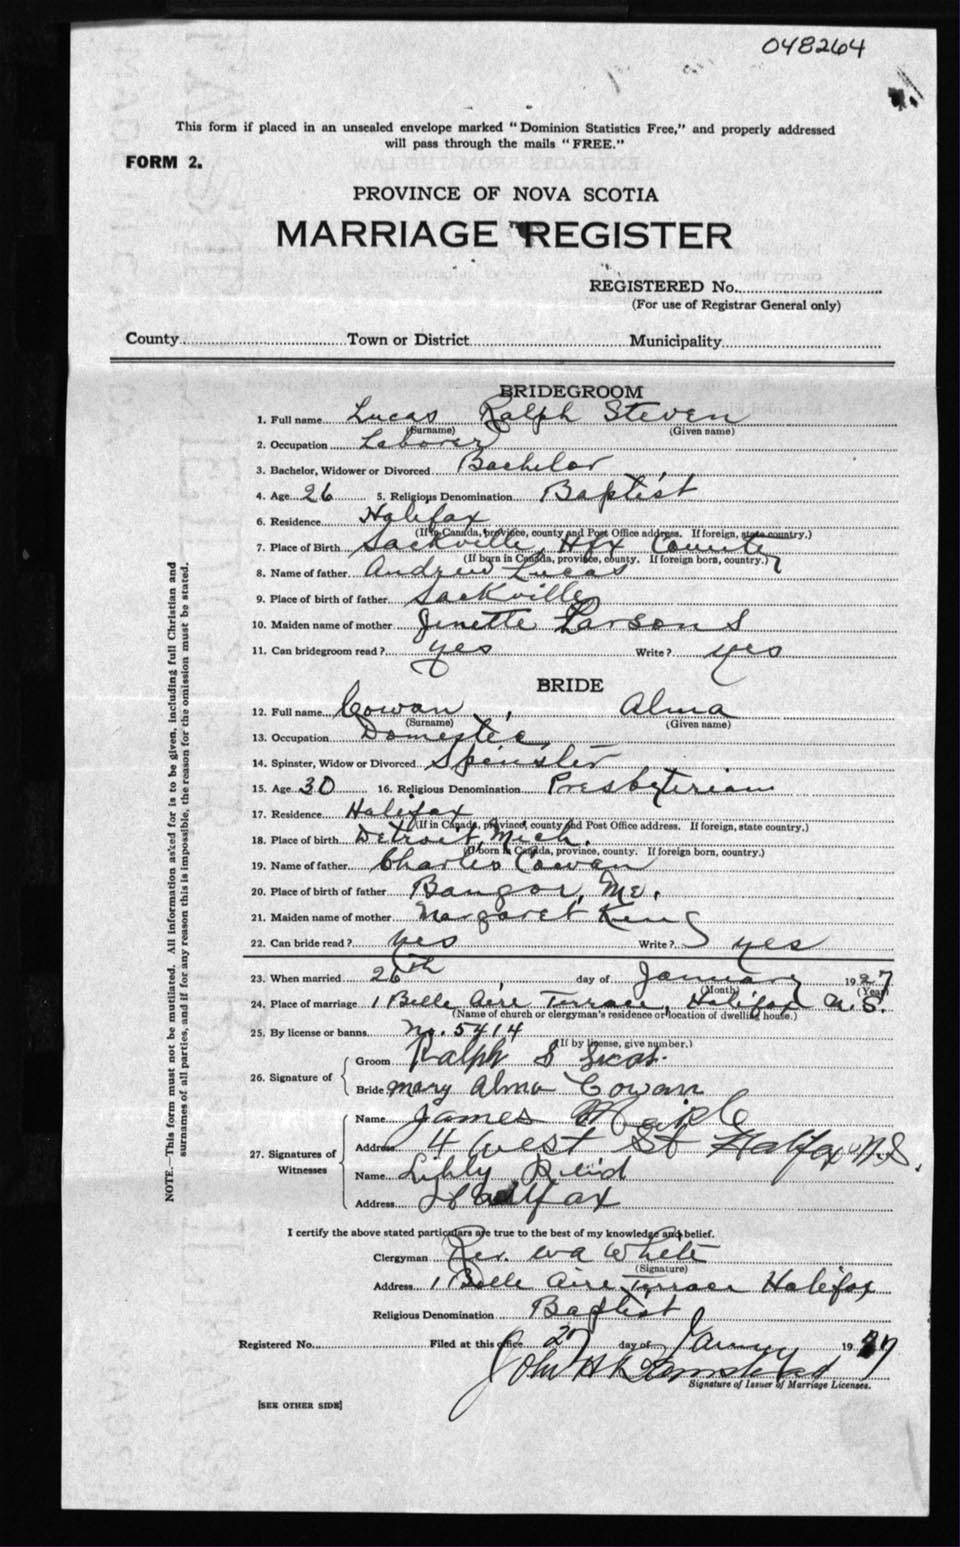 048264
This form if placed in an unsealed envelope marked "Dominion Statistics Free," and properly addressed
will pass through the mails "FREE."
FORM 2.
PROVINCE OF NOVA SCOTIA
MARRIAGE REGISTER
REGISTERED No.
(For use of Registrar General only)
County Town or District Municipality
BRIDEGROOM
1. Full name Lucas Ralph Steven
(Surname) (Given name)
2. Occupation Laborer
3. Bachelor, Widower or Divorced Bachelor
4. Age 26 5. Religious Denomination Baptist
6. Residence Halifax
(If in Canada, province, county and Post Office address. If foreign, state country.)
7. Place of Birth Sackville, Hfx County
(If born in Canada, province, county. If foreign born, country.)
8. Name of father Andrew Lucas
9. Place of birth of father Sackville
10. Maiden name of mother Jenette Parsons
11. Can bridegroom read? yes Write? yes
BRIDE
12. Full name Cowan, Alma
(Surname) (Given name)
13. Occupation Domestic
14. Spinster, Widow or Divorced Spinster
15. Age 30 16. Religious Denomination Presbyterian
17. Residence Halifax
(If in Canada, province, county and Post Office address. If foreign, state country.)
18. Place of birth Detroit, Mich.
(If born in Canada, province, county. If foreign born, country.)
19. Name of father Charles Cowan
20. Place of birth of father Bangor, Me.
21. Maiden name of mother Margaret King
22. Can bride read? yes Write? yes
23. When married 26th day of January 1927
(Month) (Year)
24. Place of marriage 1 Belle Aire Terrace, Halifax N.S.
(Name of church or clergyman's residence or location of dwelling house.)
25. By license or banns No. 5414
(If by license, give number.)
26. Signature of
Groom Ralph S Lucas
Bride Mary Alma Cowan
27. Signatures of Witnesses
Name James
Address 4 West St Halifax N.S.
Name Reid
Address Halifax
I certify the above stated particulars are true to the best of my knowledge and belief.
Clergyman Rev. Wa White
(Signature)
Address 1 Belle Aire Terrace Halifax
Religious Denomination Baptist
Registered No. Filed at this office 27 day of January 1927
John H
Signature of Issuer of Marriage Licenses.
[SEE OTHER SIDE]
NOTE.—This form must not be mutilated. All information asked for is to be given, including full Christian and
surnames of all parties, and if for any reason this is impossible, the reason for the omission must be stated.